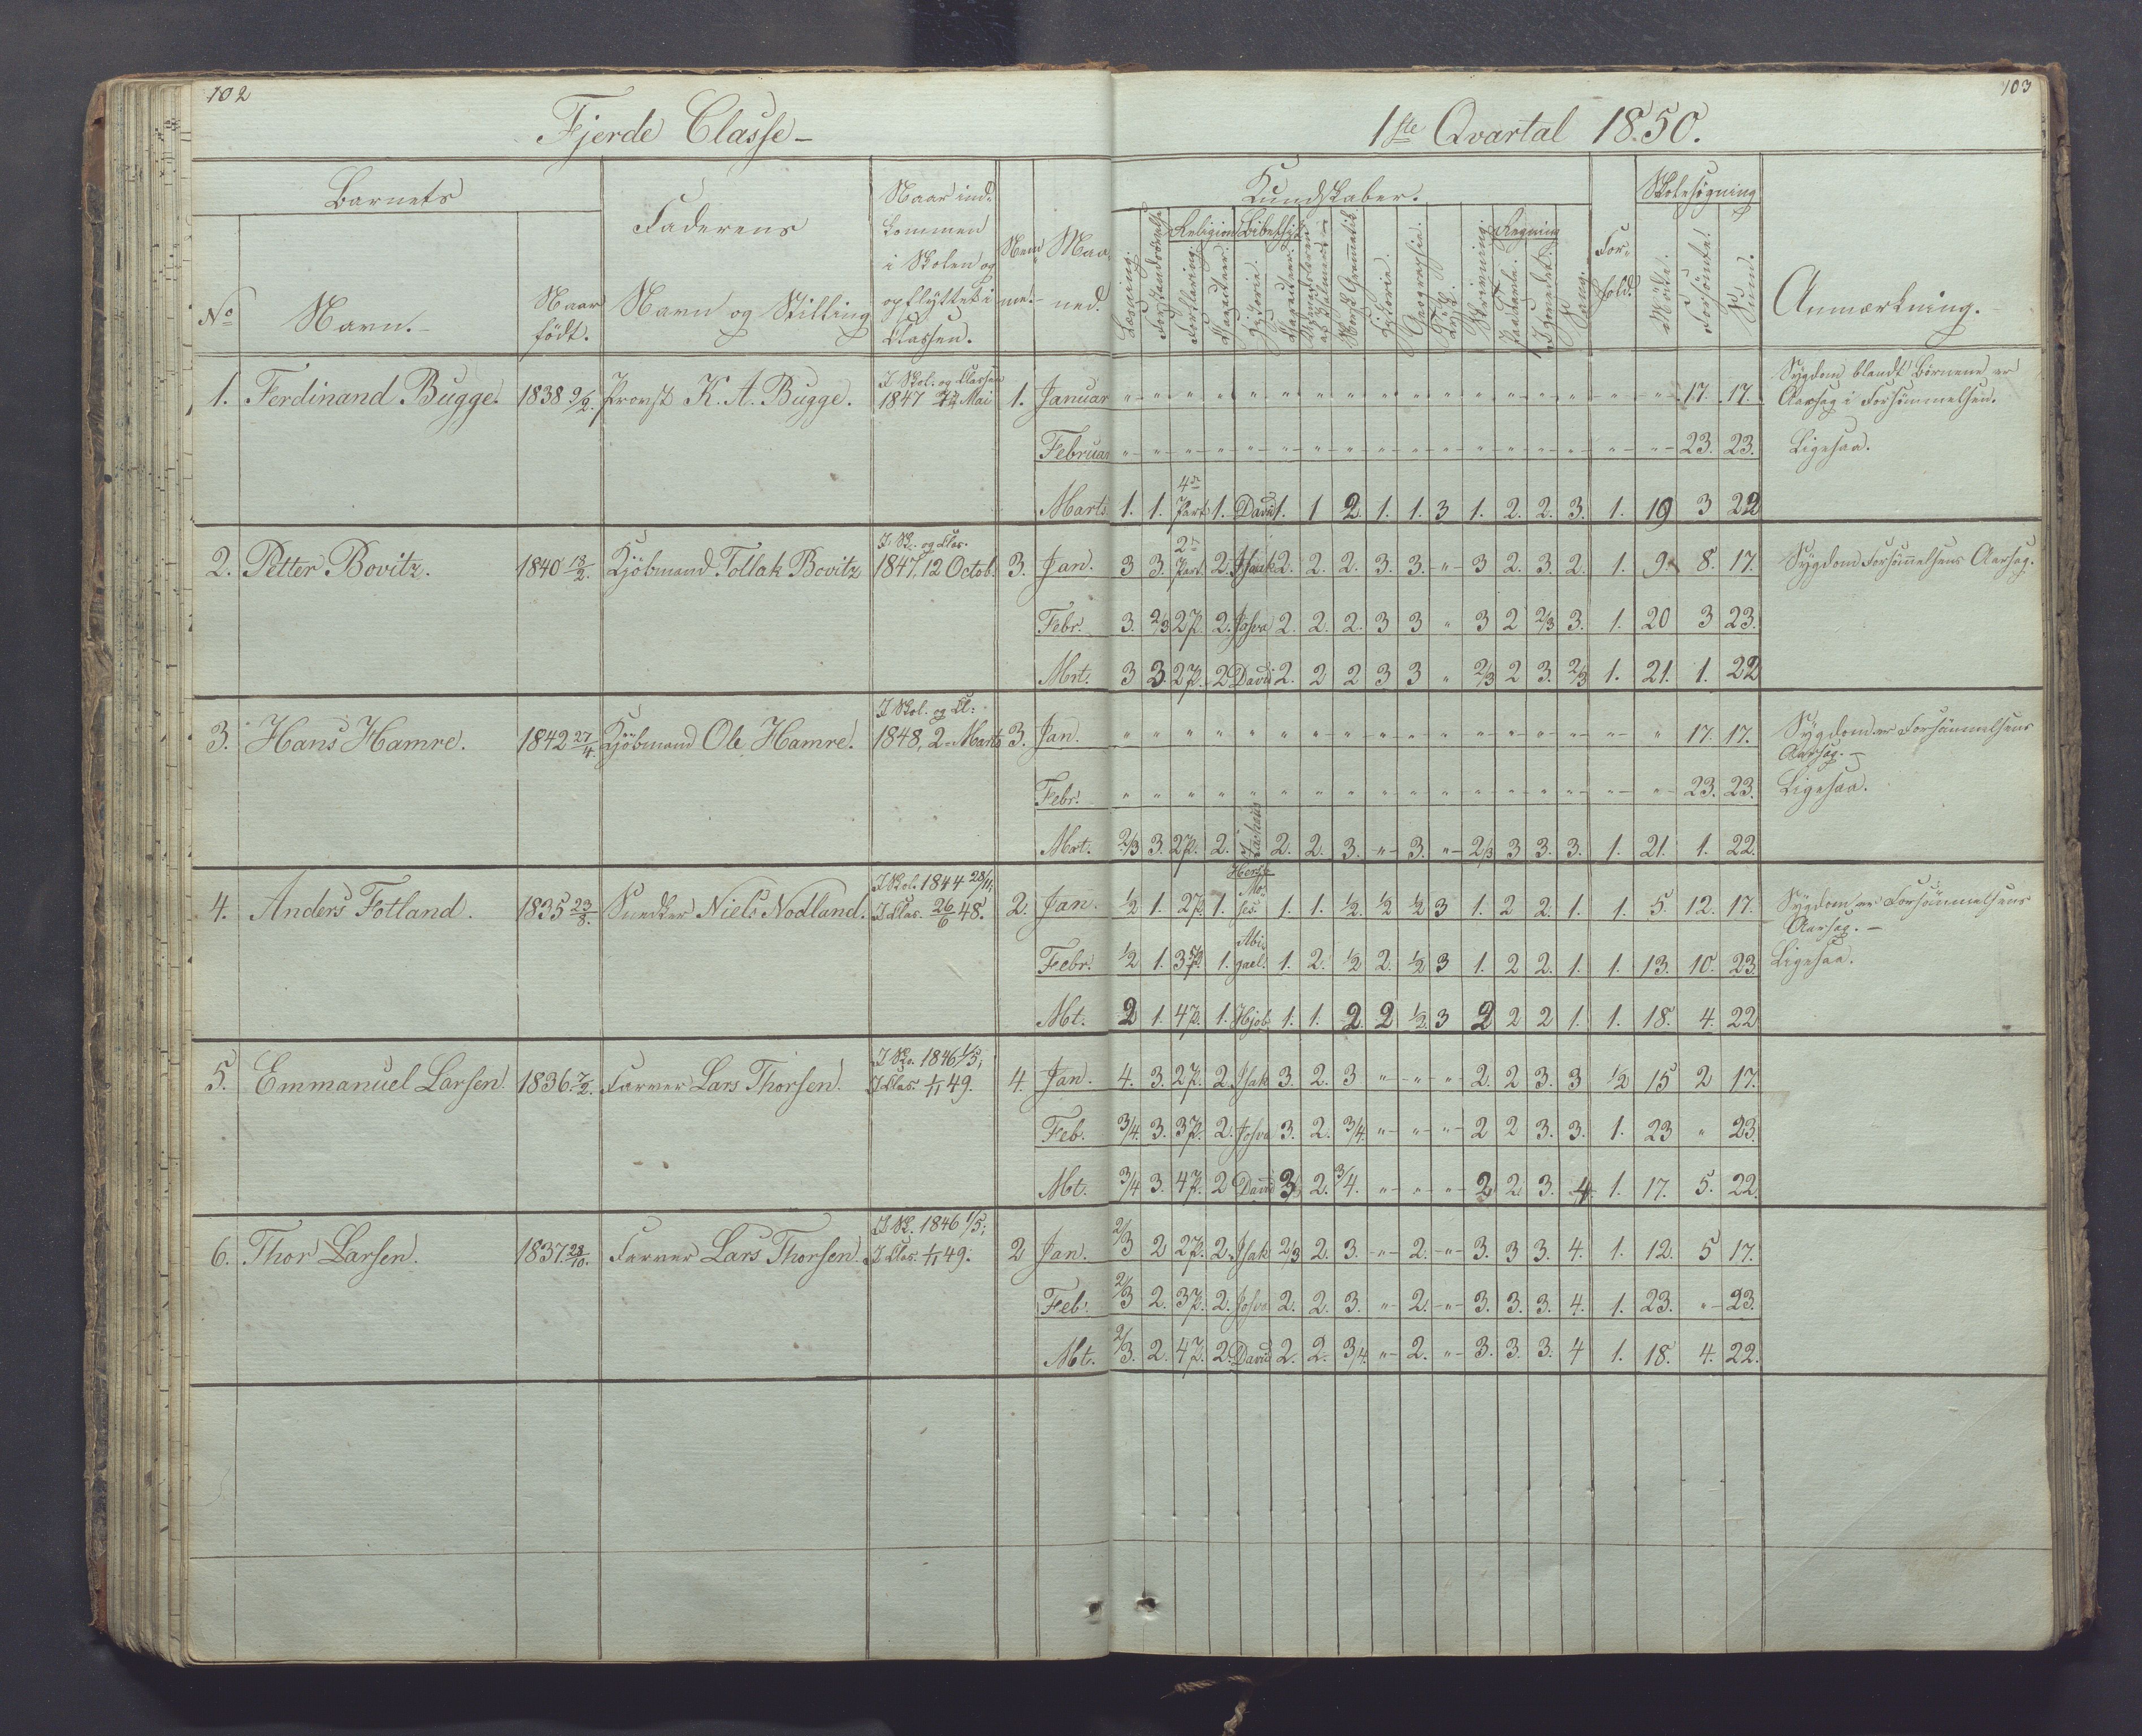 102
103
Fjerde Classe –
1ste Qvartal 1850.
Barnets
Faderens
Naar ind-
kommen
i Skolen og
opflyttet i
Classen.
Nem
me.
Maa-
ned.
No
Navn.
Naar
født.
Navn og Stilling
Kundskaber.
Læsning.
Forstandsøvelse
Religion
Forklaring.
Bibelhist.
Historie.
Norsk Gramatik.
Historie.
Geographie.
Skrivning.
Regning
Tavle.
I Hovedet.
Sang.
For-
hold.
Skolesøgning
Mødte.
Forsømte.
Sum.
Anmærkning.
1. Ferdinand Bugge. 1838 9/2. Provst K. A. Bugge. I Skol. og Classen 1847 Mai 1. Januar " " " " " " " " " " " " " " " " " 17. 17. Sygdom blandt Børnene er
Aarsag i Forsømmelsen.
Februar " " " " " " " " " " " " " " " " " 23. 23. Ligesaa.
Marts 1. 1. 4de Part 1. David 1. 1 2. 1. 1. 3 1. 2. 2. 3. 1. 19 3 22
2. Petter Bovitz. 1840 13/2. Kjöbmand Tollak Bovitz I Sk. og Clas. 1847, 12 Octob. 3. Jan. 3 3. 2den Part. 2. Isaak 2. 2. 2. 3. 3. " 3 2. 3. 2. 1. 9. 8. 17. Sygdom Forsømmelsens Aarsag.
Febr. 3. 2/3 2 P. 2. Josva 2. 2. 2. 3 3 " 3 2 2/3 3. 1. 20 3 23.
Mrt. 3 3. 2 P. 2 David 2. 2 2 3 3 " 2/3 2 3. 2/3 1. 21. 1. 22
3. Hans Hamre. 1842 27/4. Kjöbmand Ole Hamre. I Skol. og Cl: 1848, 2. Marts 3. Jan. " " " " " " " " " " " " " " " " " 17. 17. Sygdom er Forsømmelsens
Aarsag. –
Febr. " " " " " " " " " " " " " " " " " 23. 23. Ligesaa.
Mrt. 2/3 3. 2 P. 2. 2. 2. 3. " 3. " 2/3 3 3. 3. 1. 21. 1. 22.
4. Anders Fotland. 1835 23/8. Snedker Niels Nodland. I Skol. 1844 28/11; I Clas. 26/6 48. 2. Jan. 1/2 1. 2 P. 1. Mo-
ses. 1. 1. 1/2. 1/2 1/2 3 1. 2 2. 1. 1. 5. 12. 17. Sygdom er Forsømmelsens
Aarsag. –
Febr. 1/2 1. 3 P. 1. Abi-
gael. 1. 2. 1/2 2. 1/2 3 1. 2 2. 1. 1. 13. 10. 23 Ligesaa.
Mt. 2 1. 4 P. 1. Hjob 1. 1. 2. 2 1/2. 3 2 2 2 1. 1. 18. 4. 22
5. Emmanuel Larsen. 1836. 7/2. Farver Lars Thorsen. I Sko. 1846 1/5; I Clas. 1/11 49. 4. Jan. 4. 3. 2 P. 2. Isak 3. 2. 3 " " " 2. 2 3. 3 1/2 15 2 17.
Feb. 3/4. 3. 3 P. 2. Josva 3. 2. 3/4. " " " 2 2 3. 3. 1. 23 " 23.
Mt. 3/4 3. 4 P. 2 David 3 2. 3/4. " " " 2 2. 3. 4 1. 17. 5. 22.
6. Thor Larsen. 1837. 28/10. Farver Lars Thorsen. I Sk. 1846 1/5; I Clas. 1/11 49. 2 Jan. 2/3 2 2 P. 2. Isak 2/3 2. 3. " 2. " 3. 3 3. 4. 1. 12. 5 17.
Feb. 2/3 2. 3 P. 2. Josva 2. 2. 3. " 2. " 3. 3. 3. 4. 1. 23. " 23.
Mt. 2/3. 2. 4 P. 2. David 2. 2. 3/4. " 2. " 3. 3. 3. 4 1. 18. 4. 22.